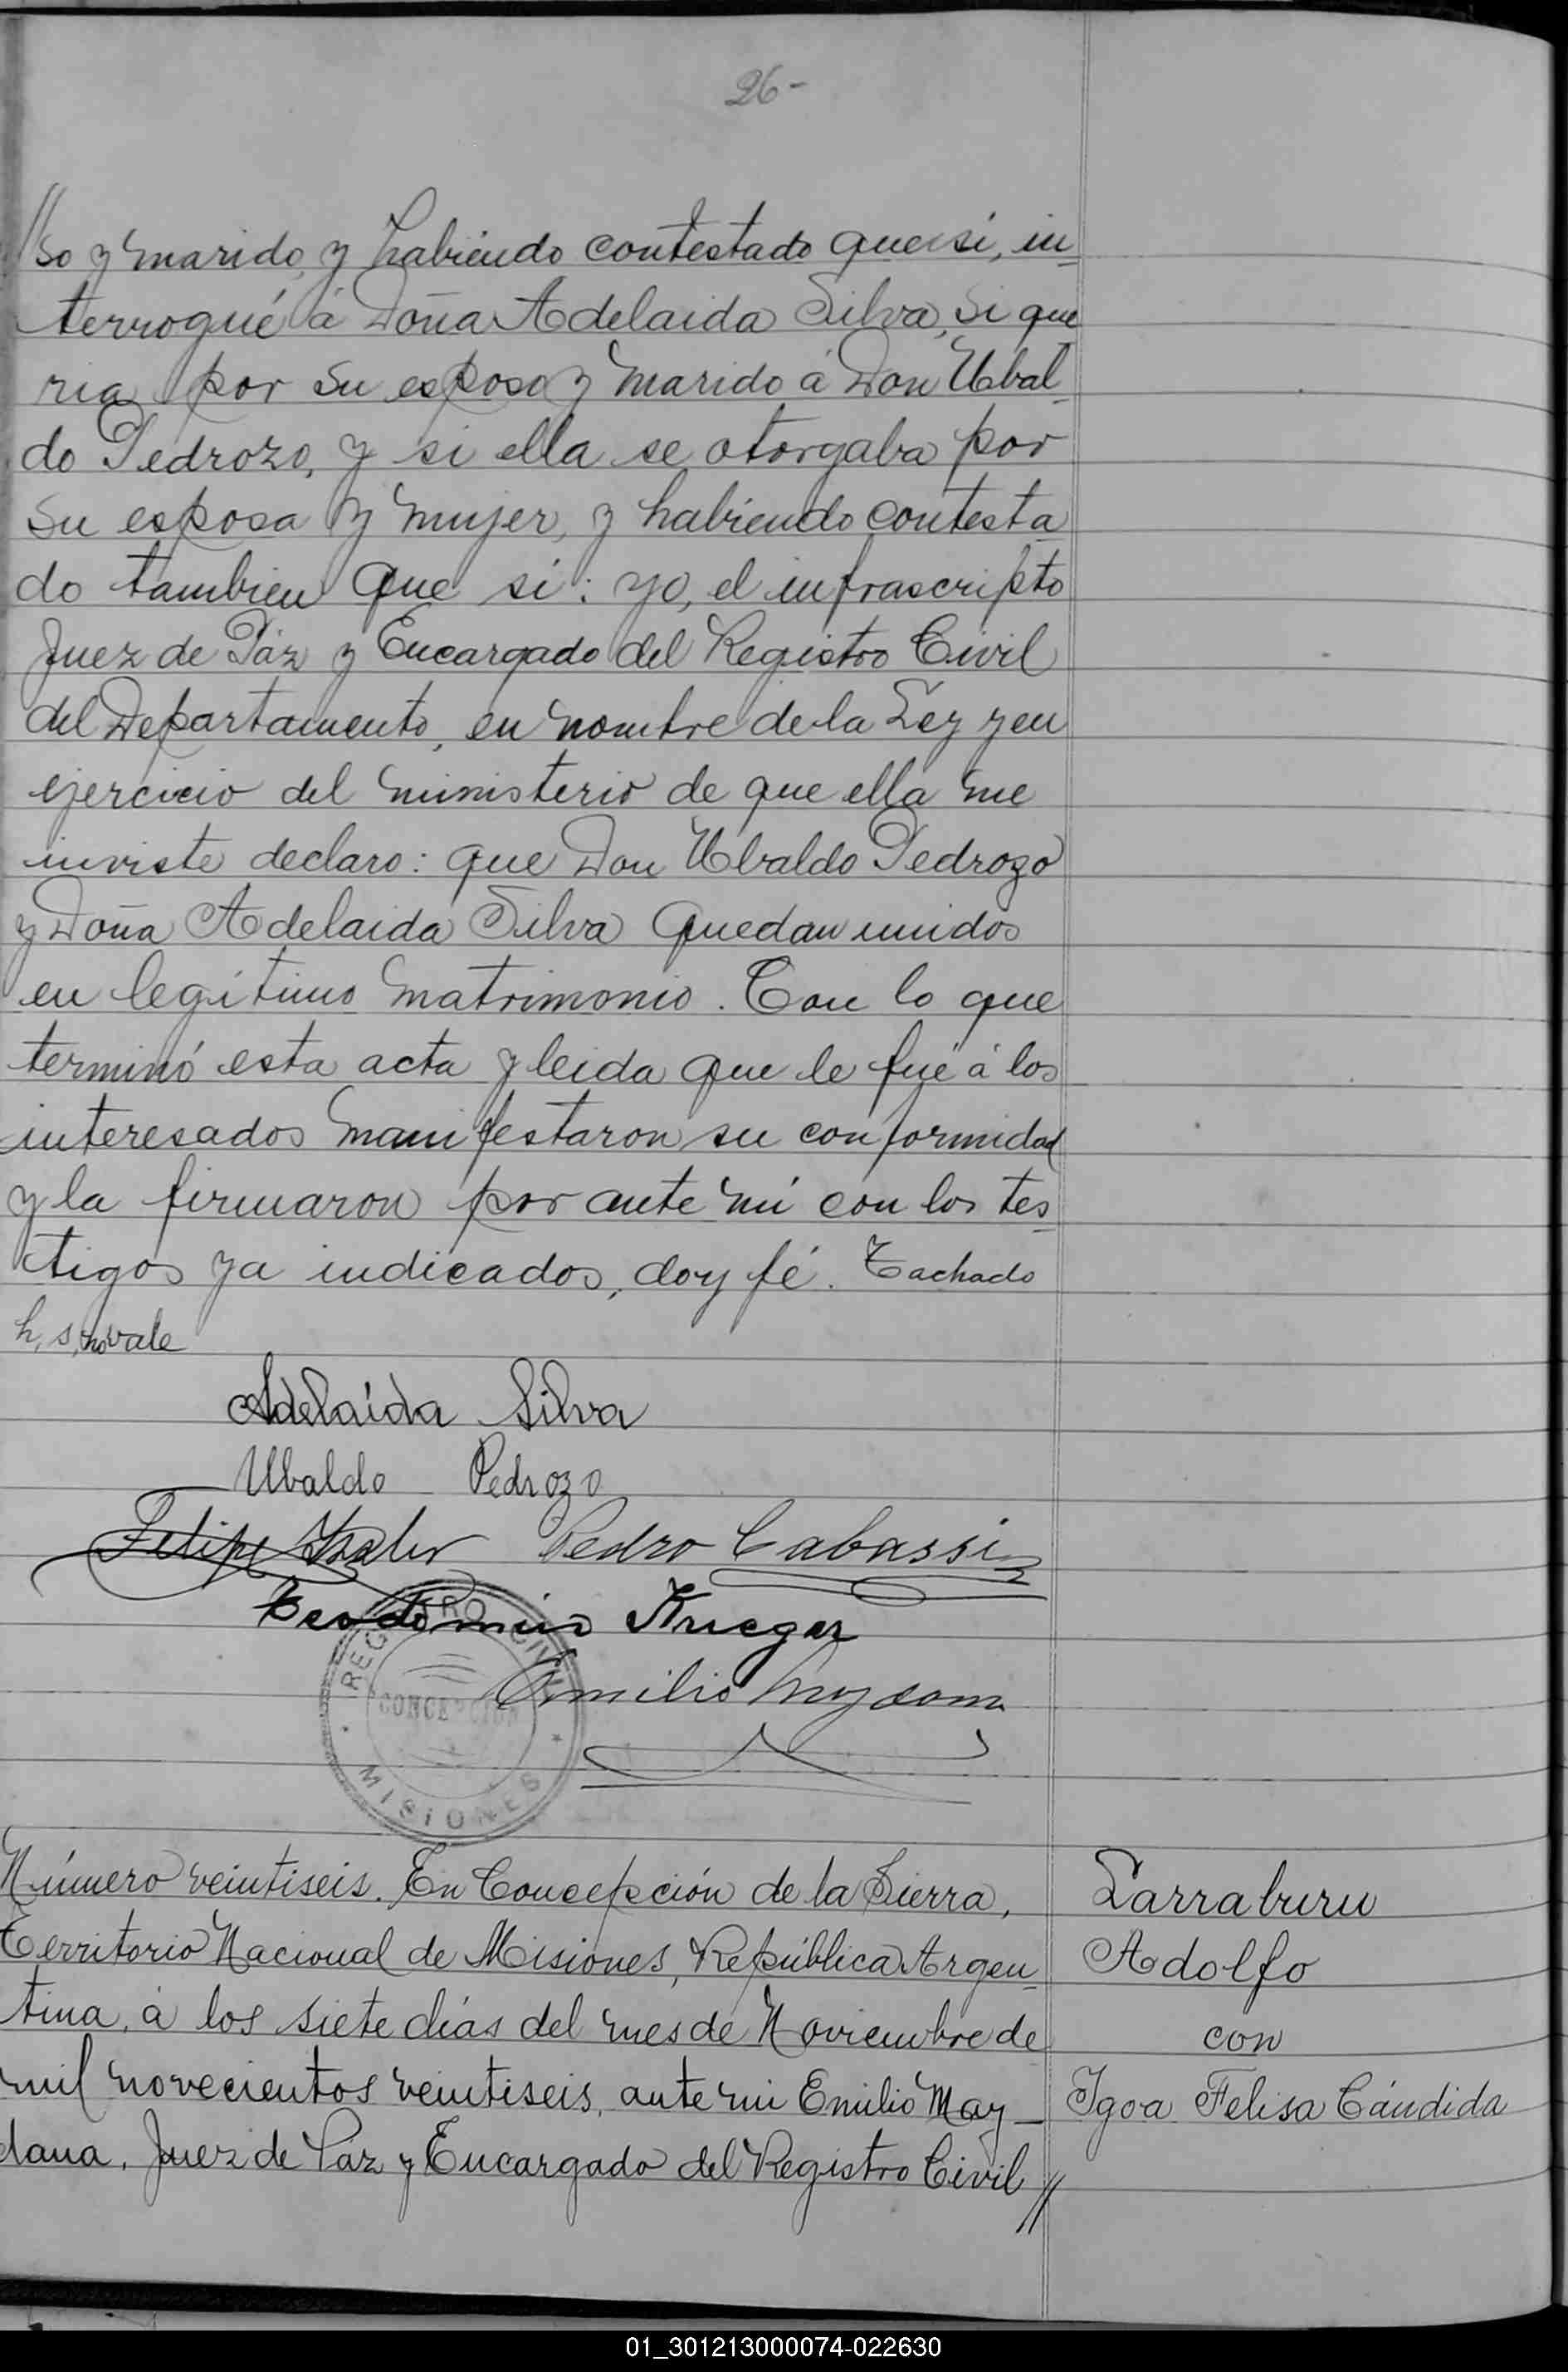 26-
//so y marido, y habiendo contestado que si, in-
terrogué á Doña Adelaida Silva, si que
ria por su esposo y marido á Don Ubal-
do Pedrozo, y si ella se otorgaba por
su esposa y mujer, y habiendo contesta
do tambien que si: yo, el infrascripto
Juez de Páz y Encargado del Registro Civil
del Departamento, en nombre de la Ley y en
ejercicio del ministerio de que ella me
inviste declaro: que Don Ubaldo Pedrozo
y Doña Adelaida Silva quedan unidos
en legítimo matrimonio. Con lo que
terminó esta acta y leida que le fué á los
interesados manifestaron su conformidad
y la firmaron por ante mi con los tes-
tigos ya indicados, doy fé. Tachado
h, s, no vale
Adelaida Silva
Ubaldo Pedrozo
Felipe Pedro Cabassi
Teodomiro Krieger
Emilio
REGISTRO CIVIL
CONCEPCIÓN
MISIONES
Número veintiseis. En Concepción de la Sierra,
Territorio Nacional de Misiones, República Argen-
tina, á los siete días del mes de Noviembre de
mil novecientos veintiseis, ante mi Emilio May-
dana, Juez de Paz y Encargado del Registro Civil//
Larraburu
Adolfo
con
Igoa Felisa Cándida
01_301213000074-022630